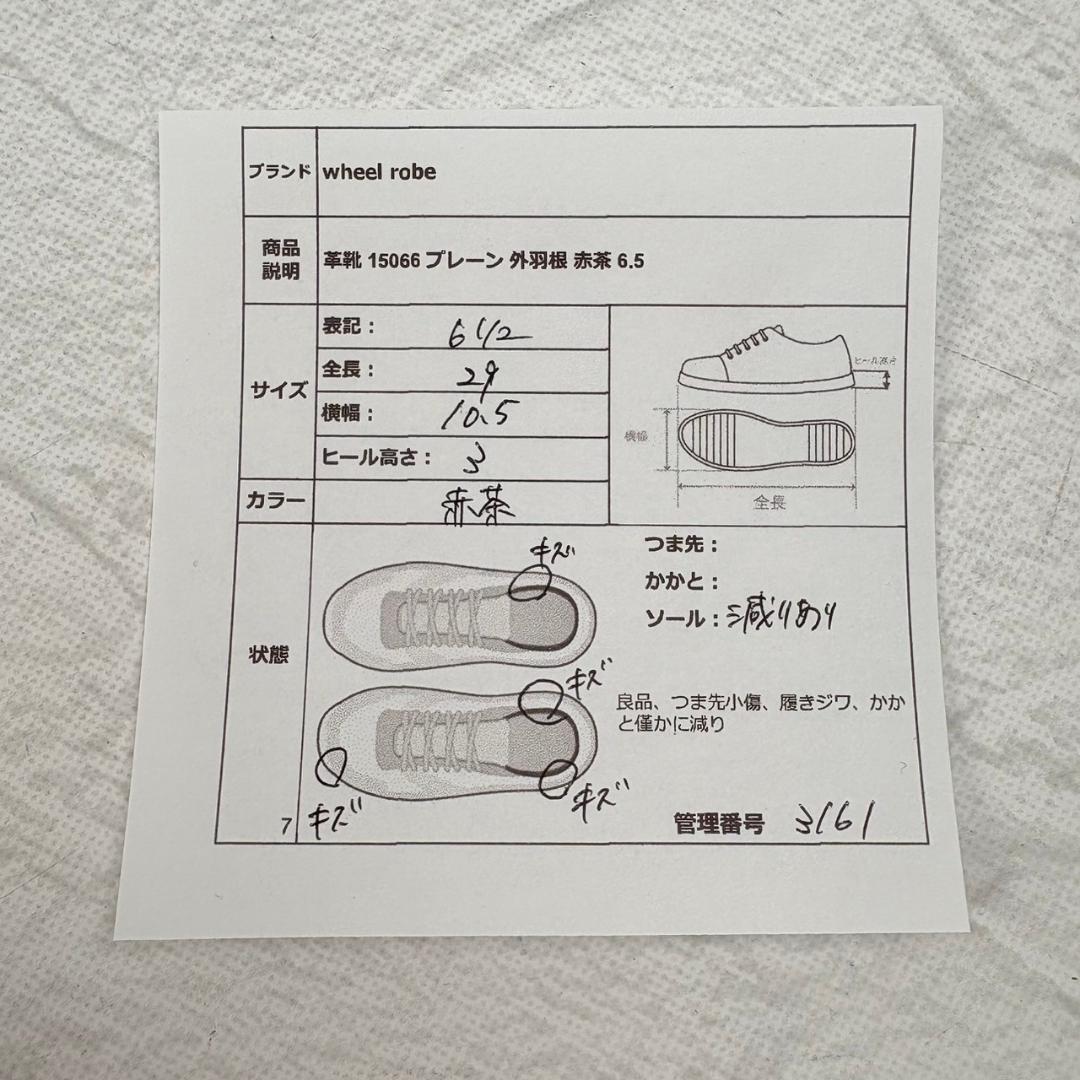 ブランド wheel robe
商品
説明
革靴 15066 プレーン 外羽根 赤茶 6.5
サイズ
表記： 6 1/2
全長： 29
横幅： 10.5
ヒール高さ： 3
ヒール高さ
横幅
全長
カラー 赤茶
状態
キズ
キズ
キズ
キズ
つま先：
かかと：
ソール：減りあり
良品、つま先小傷、履きジワ、かか
と僅かに減り
7
管理番号 3161